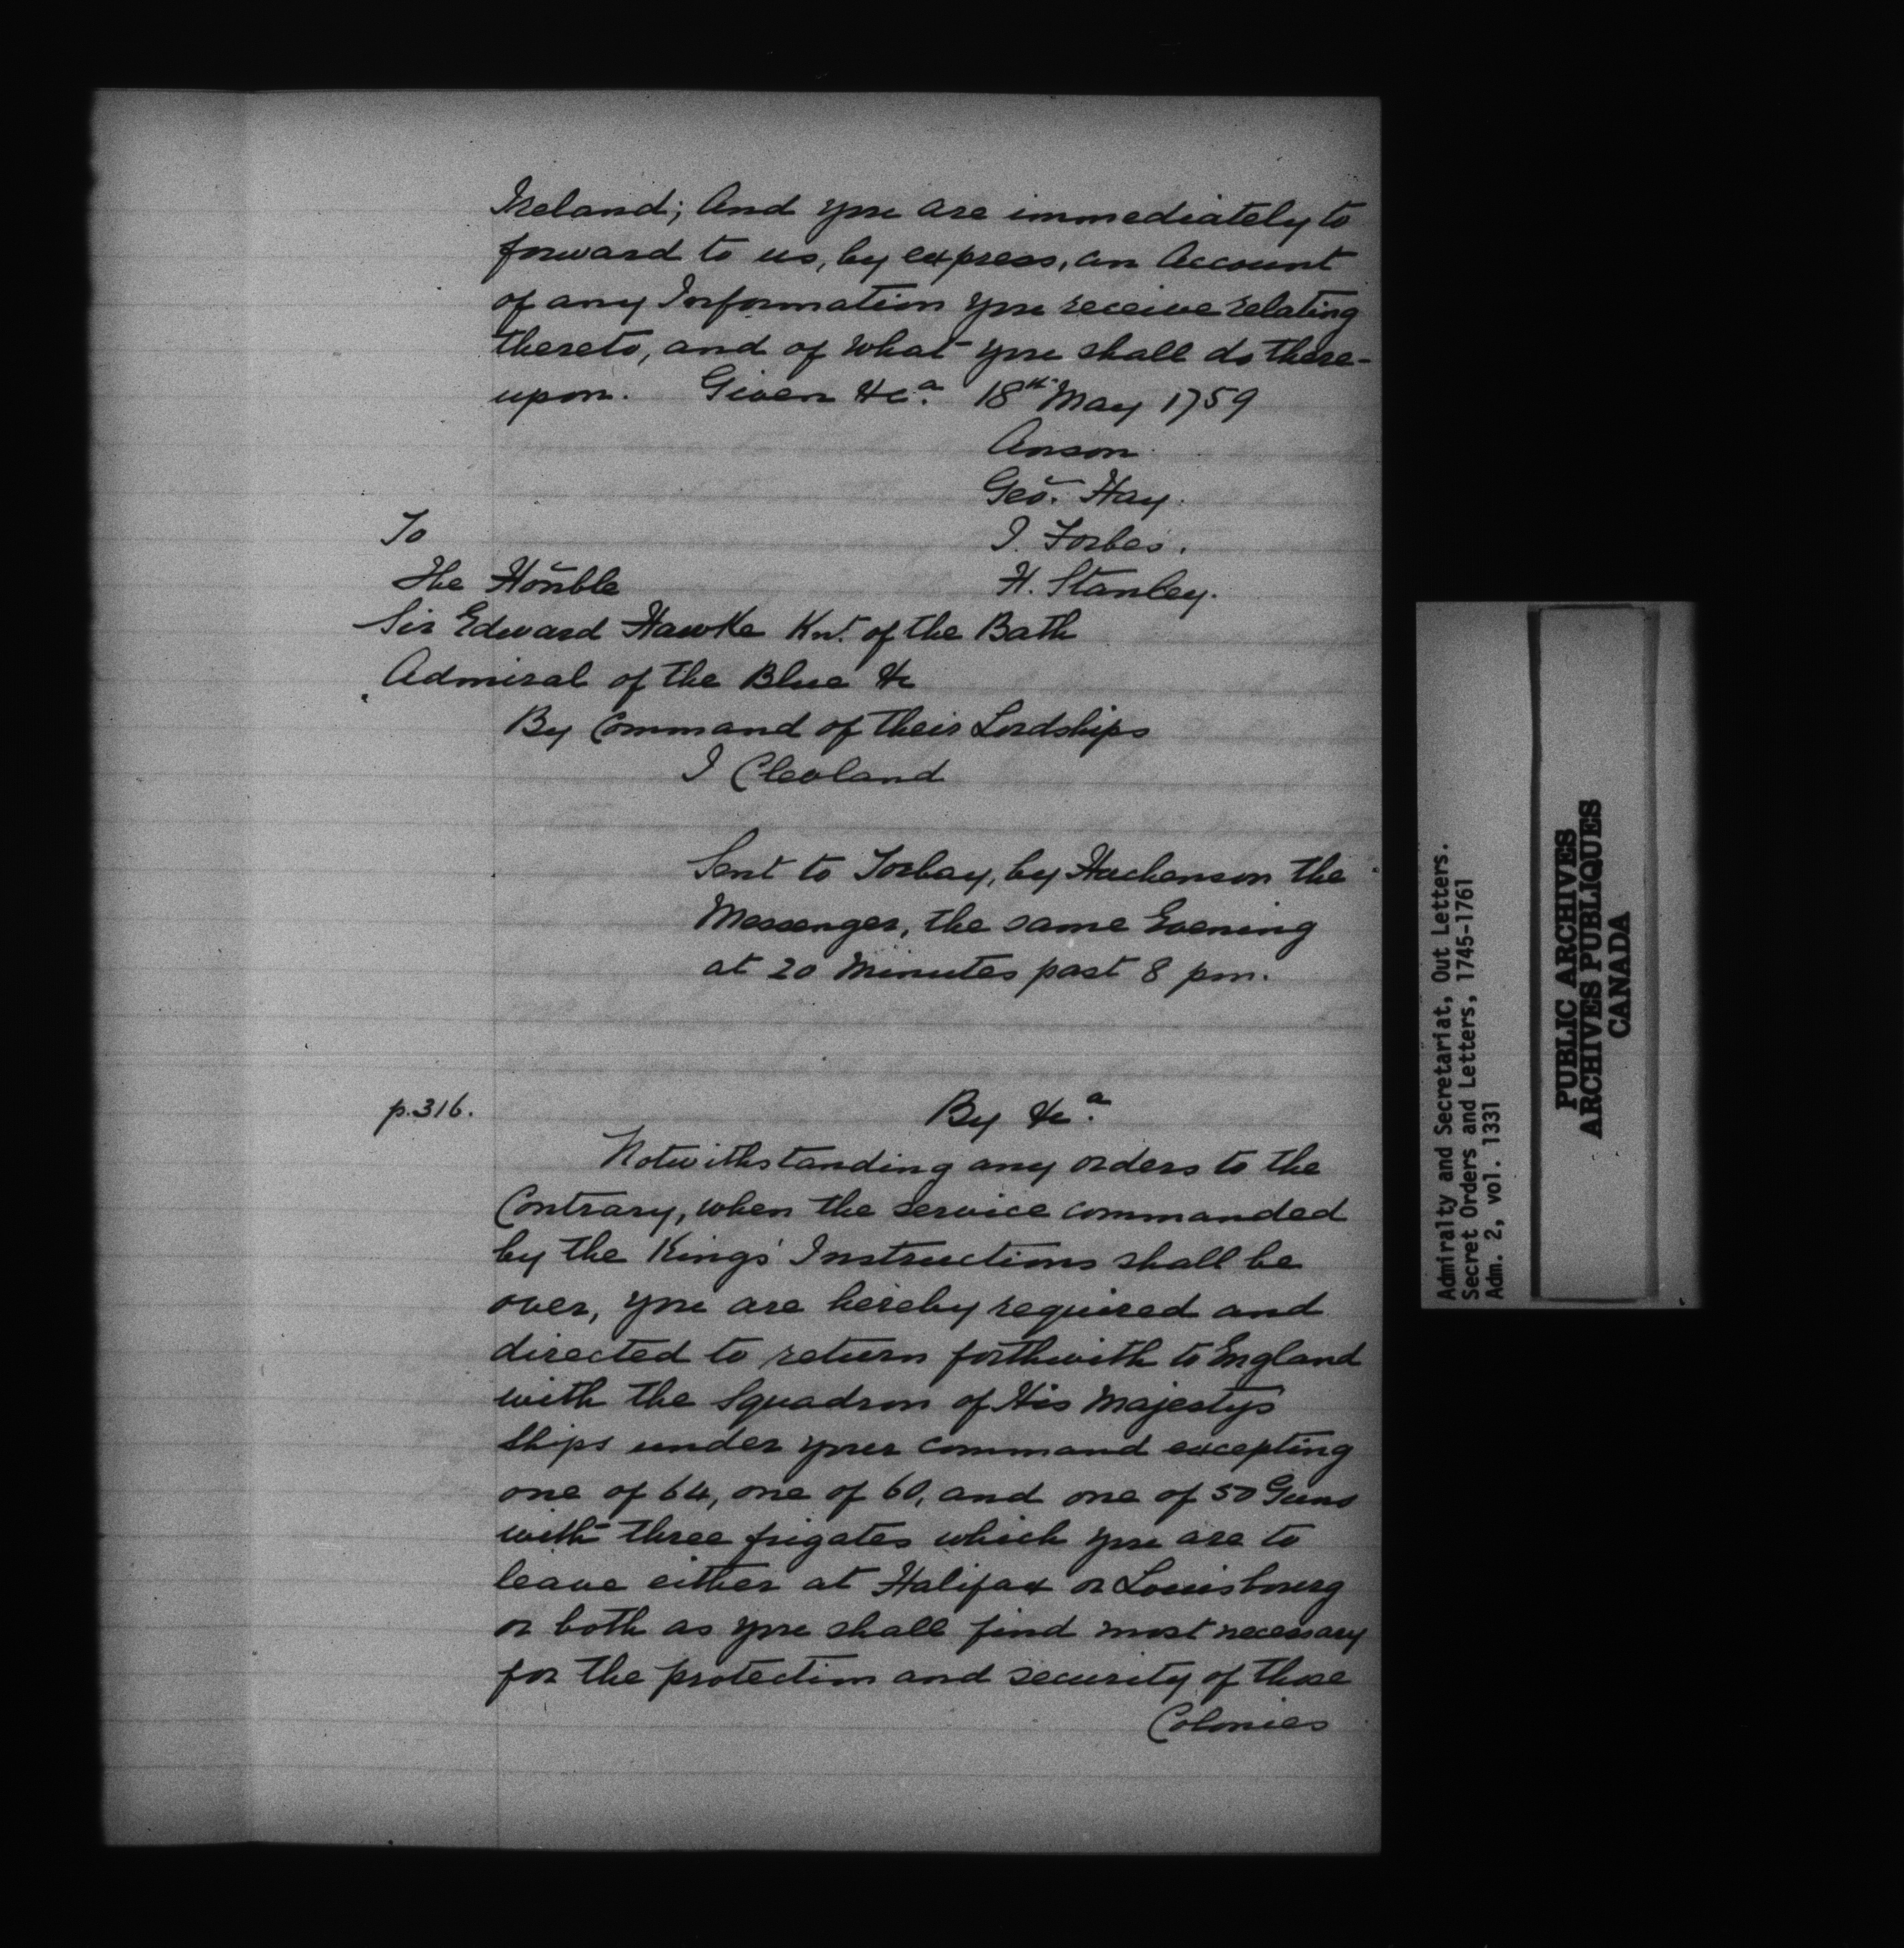 Ireland; And you are immediately to
forward to us, by express, an Account
of any Information you receive relating
thereto, and of what you shall do there-
upon. Given &c.a 18th May 1759
Anson
Geo. Hay.
J. Forbes.
H. Stanley.
To
The Honble
Sir Edward Hawke Knt. of the Bath
Admiral of the Blue &c
By Command of their Lordships
J Clevland
Sent to Torbay, by the
Messenger, the same Evening
at 20 Minutes past 8 pm.
p.316.
By &c.a
Notwithstanding any orders to the
Contrary, when the service commanded
by the Kings' Instructions shall be
over, you are hereby required and
directed to return forthwith to England
with the Squadron of His Majestys
Ships under your command excepting
one of 64, one of 60, and one of 50 Guns
with three frigates which you are to
leave either at Halifax or Louisbourg
or both as you shall find most necessary
for the protection and security of those
Colonies
Admiralty and Secretariat, Out Letters.
Secret Orders and Letters, 1745-1761
Adm. 2, vol. 1331
PUBLIC ARCHIVES
ARCHIVES PUBLIQUES
CANADA